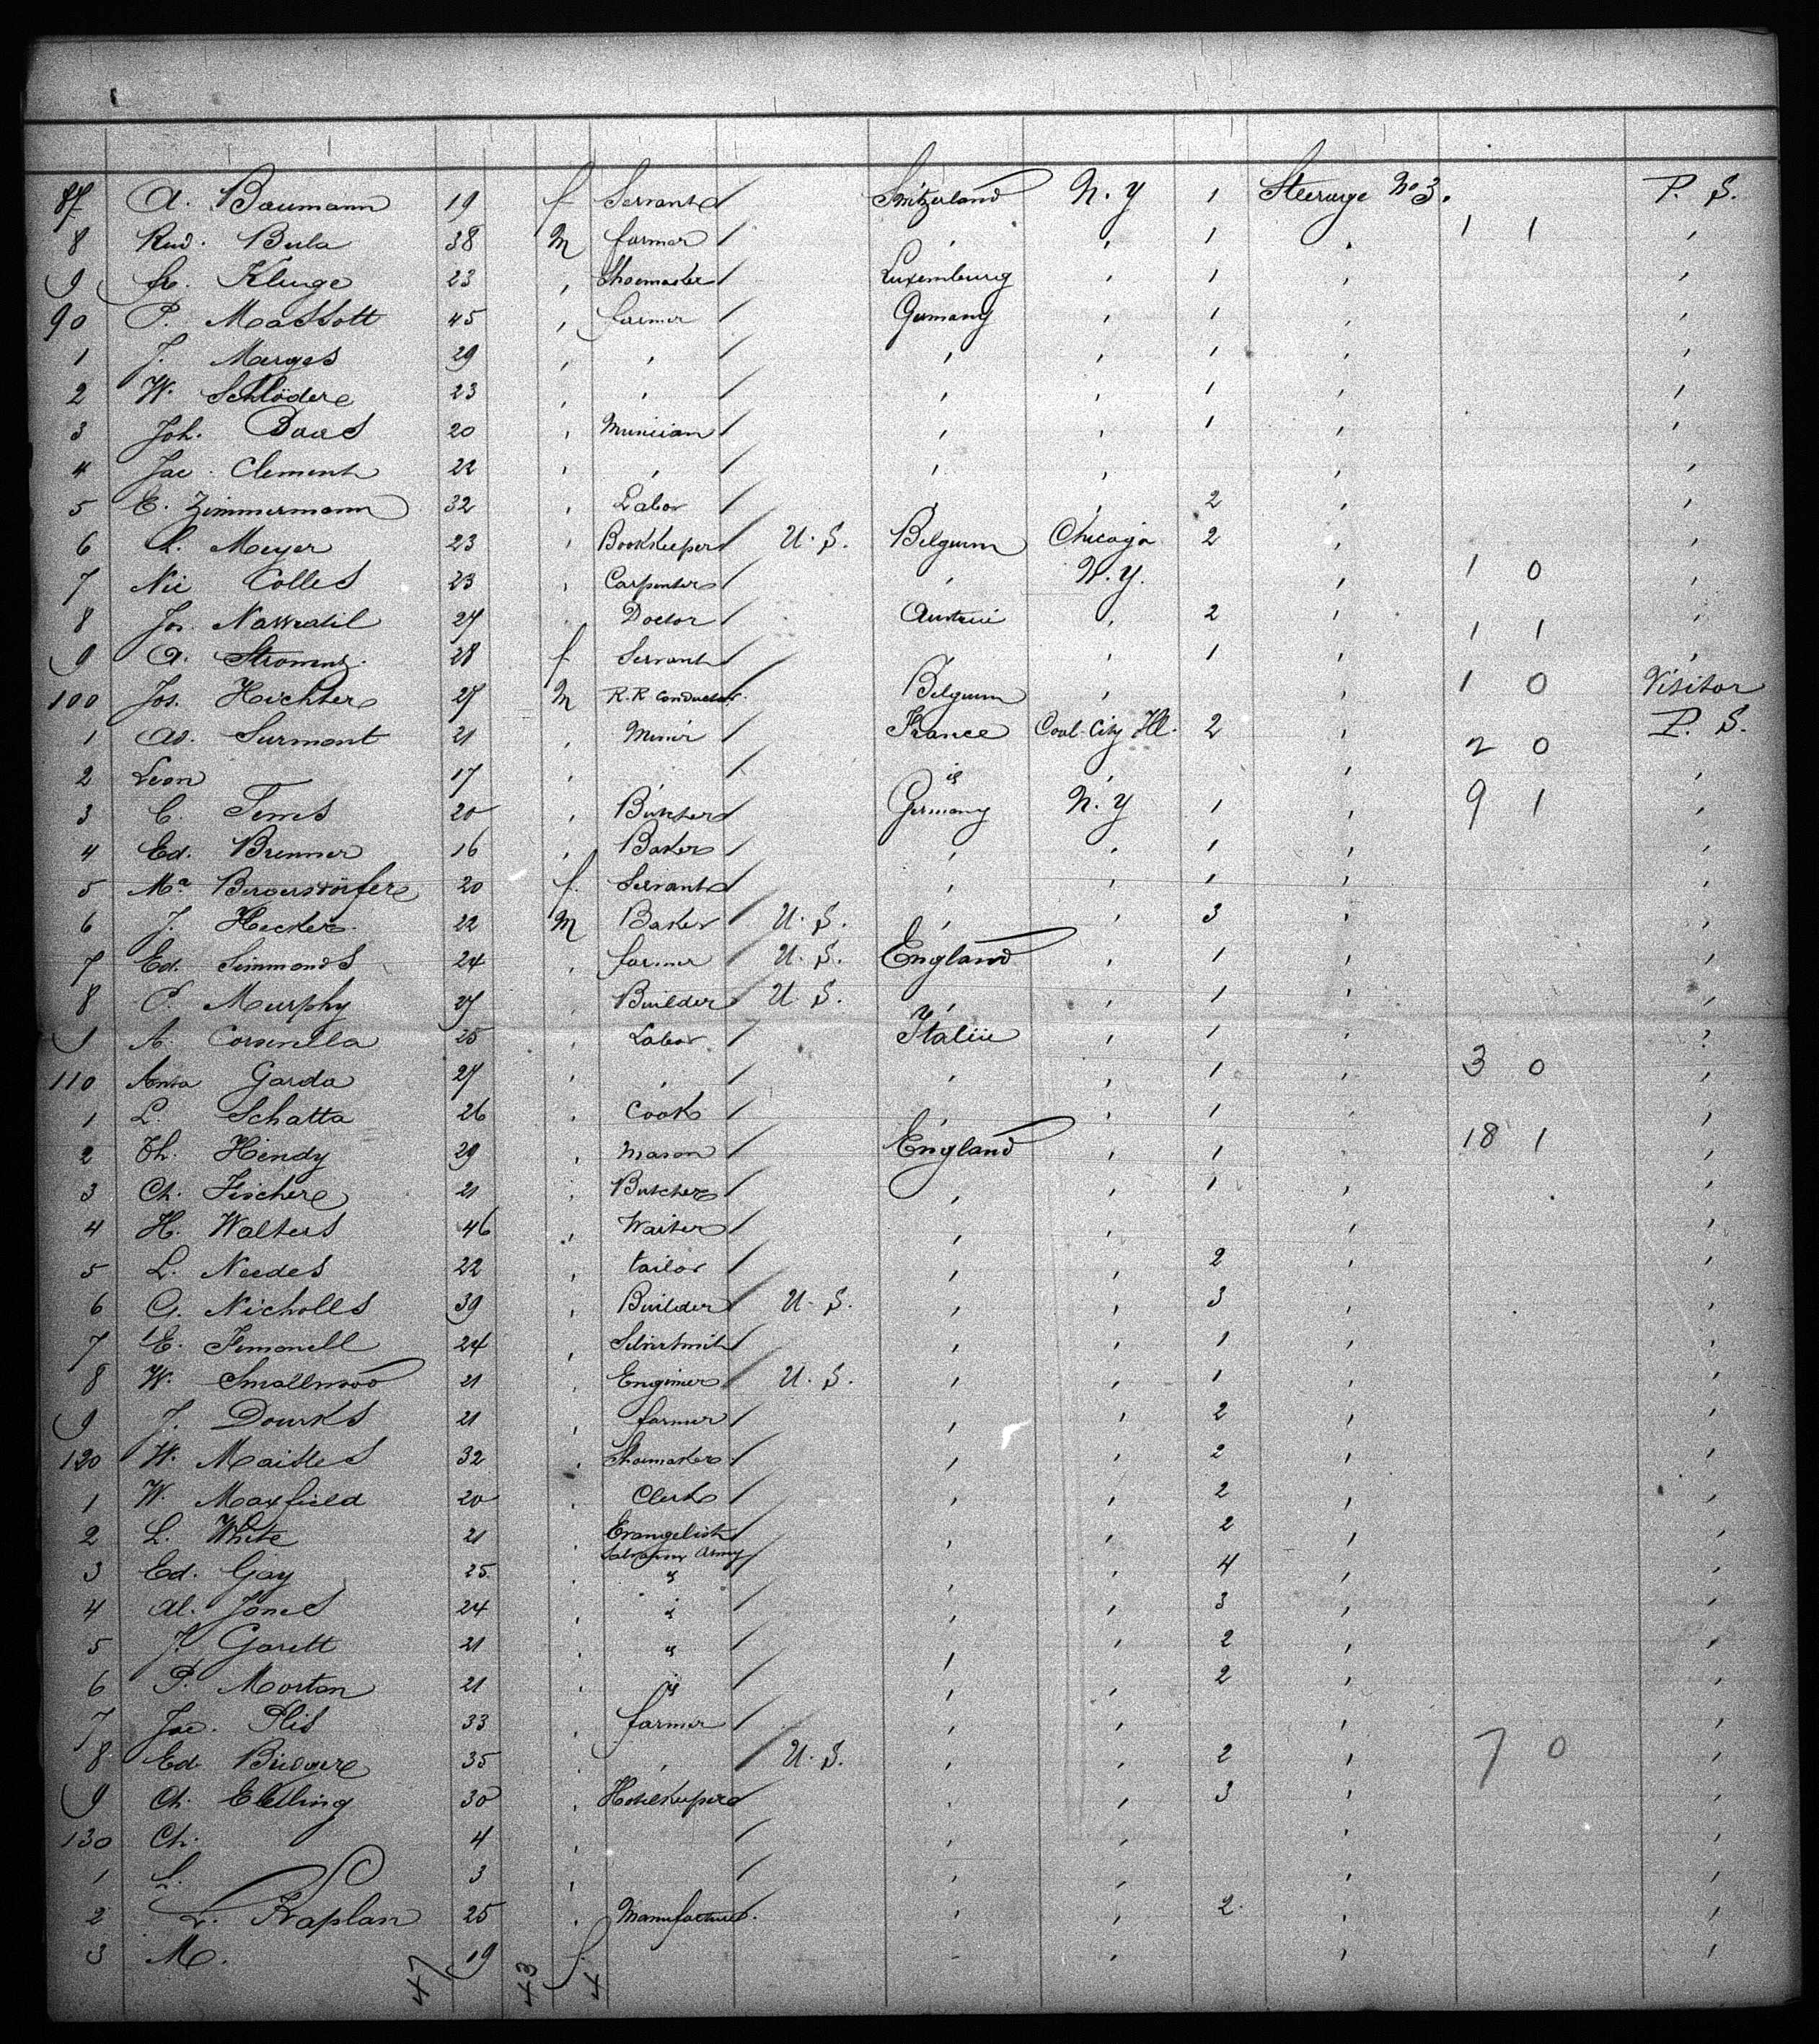 87 A. Baumann 19 f Servant Switzerland N.Y 1 Steerage No 3. P. S.
8 Rud. Bula 38 M farmer , , 1 , 1 1 ,
9 fr. Kluge 23 , Shoemaker Luxemburg , 1 , ,
90 P. Massott 45 , farmer Germany , 1 , ,
1 J. Marges 29 , , , , 1 , ,
2 W. Schlöder 23 , , , , 1 , ,
3 Joh. Baas 20 , Musician , , 1 , ,
4 Jac. Clement 22 , , , , , ,
5 E. Zimmermann 32 , Labor , , 2 , ,
6 L. Meyer 23 , Bookkeeper U. S. Belgium Chicago 2 ,
7 Nic Colles 23 , Carpenter , N.Y. , 1 0 ,
8 Jos. Nawratil 27 , Doctor Austria , 2 , 1 1 ,
9 A. 28 f Servant , , 1 , ,
100 Jos. Hichter 27 M R.R Conductor. Belgium , , 1 0 Visitor
1 Ad. Surmont 21 , Miner France Coal-City Ill. 2 , 2 0 P. S.
2 Leon 17 , , " , ,
3 C. Tems 20 , Butcher Germany N.Y 1 , 9 1 ,
4 Ed. Brenner 16 , Baker , , 1 , ,
5 Ma Bergersdörfer 20 f. Servant , , 1 , ,
6 J. Hecker 22 M Baker U. S. , , 3 , ,
7 Ed. Simmonds 24 , farmer U. S. England , 1 , ,
8 P. Murphy 27 , Builder U. S. , , 1 , ,
9 A. 25 , Labor Italie , 1 , ,
110 Anna Garda 27 , , , , 1 , 3 0 ,
1 L. Schatta 26 , Cook , , 1 , ,
2 Th. Hendy 29 , Mason England , 1 , 18 1 ,
3 Ch. Fischer 21 , Butcher , , 1 , ,
4 H. Walters 46 , Waiter , , , ,
5 L. Needes 22 , tailor , , 2 , ,
6 G. Nicholls 39 , Builder U. S. , , 3 , ,
7 E. Femonell 24 , Silversmith , , 1 , ,
8 W. Smallwood 21 , Engineer U. S. , , 1 , ,
9 J. Dourks 21 , farmer , , 2 , ,
120 W. 32 , Shoemaker , , 2 , ,
1 W. Maxfield 20 , Clerk , , 2 , ,
2 L. White 21 , Evangelist , , 2 , ,
Salvation Army
3 Ed. Gay 25 , " , , 4 , ,
4 Al. Jones 24 , " , , 3 , ,
5 J. Garett 21 , " , , 2 , ,
6 P. Morton 21 , " , , 2 , ,
7 Jac. Plis 33 , farmer , , , ,
8 Ed. 35 , , U. S. , , 2 , 7 0 ,
9 Ch. Elelling 30 , Hotelkeeper , , 3 , ,
130 Ch. 4 , , , , ,
1 L. 3 , , , , ,
2 L. Kaplan 25 , Manufacturer. , , 2. , ,
3 M. 19 f. , , , ,
47 43 4